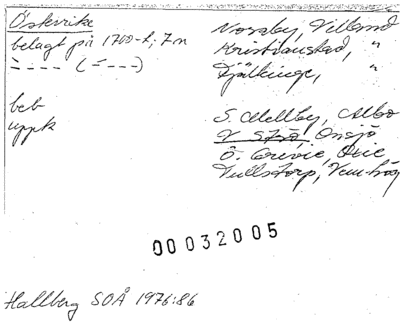 Öskvike
belagt på 1700-t; 7n
=---- (=---)
beb
uppk
Norrby, Villand
Kristianstad, "
Fjälkinge, "
S. Mellby, Albo
V Stro, Onsjö
Ö. Grevie, Oxie
Vallstorp, Vemmenhög
00032005
Hallberg SOÅ 1976:86